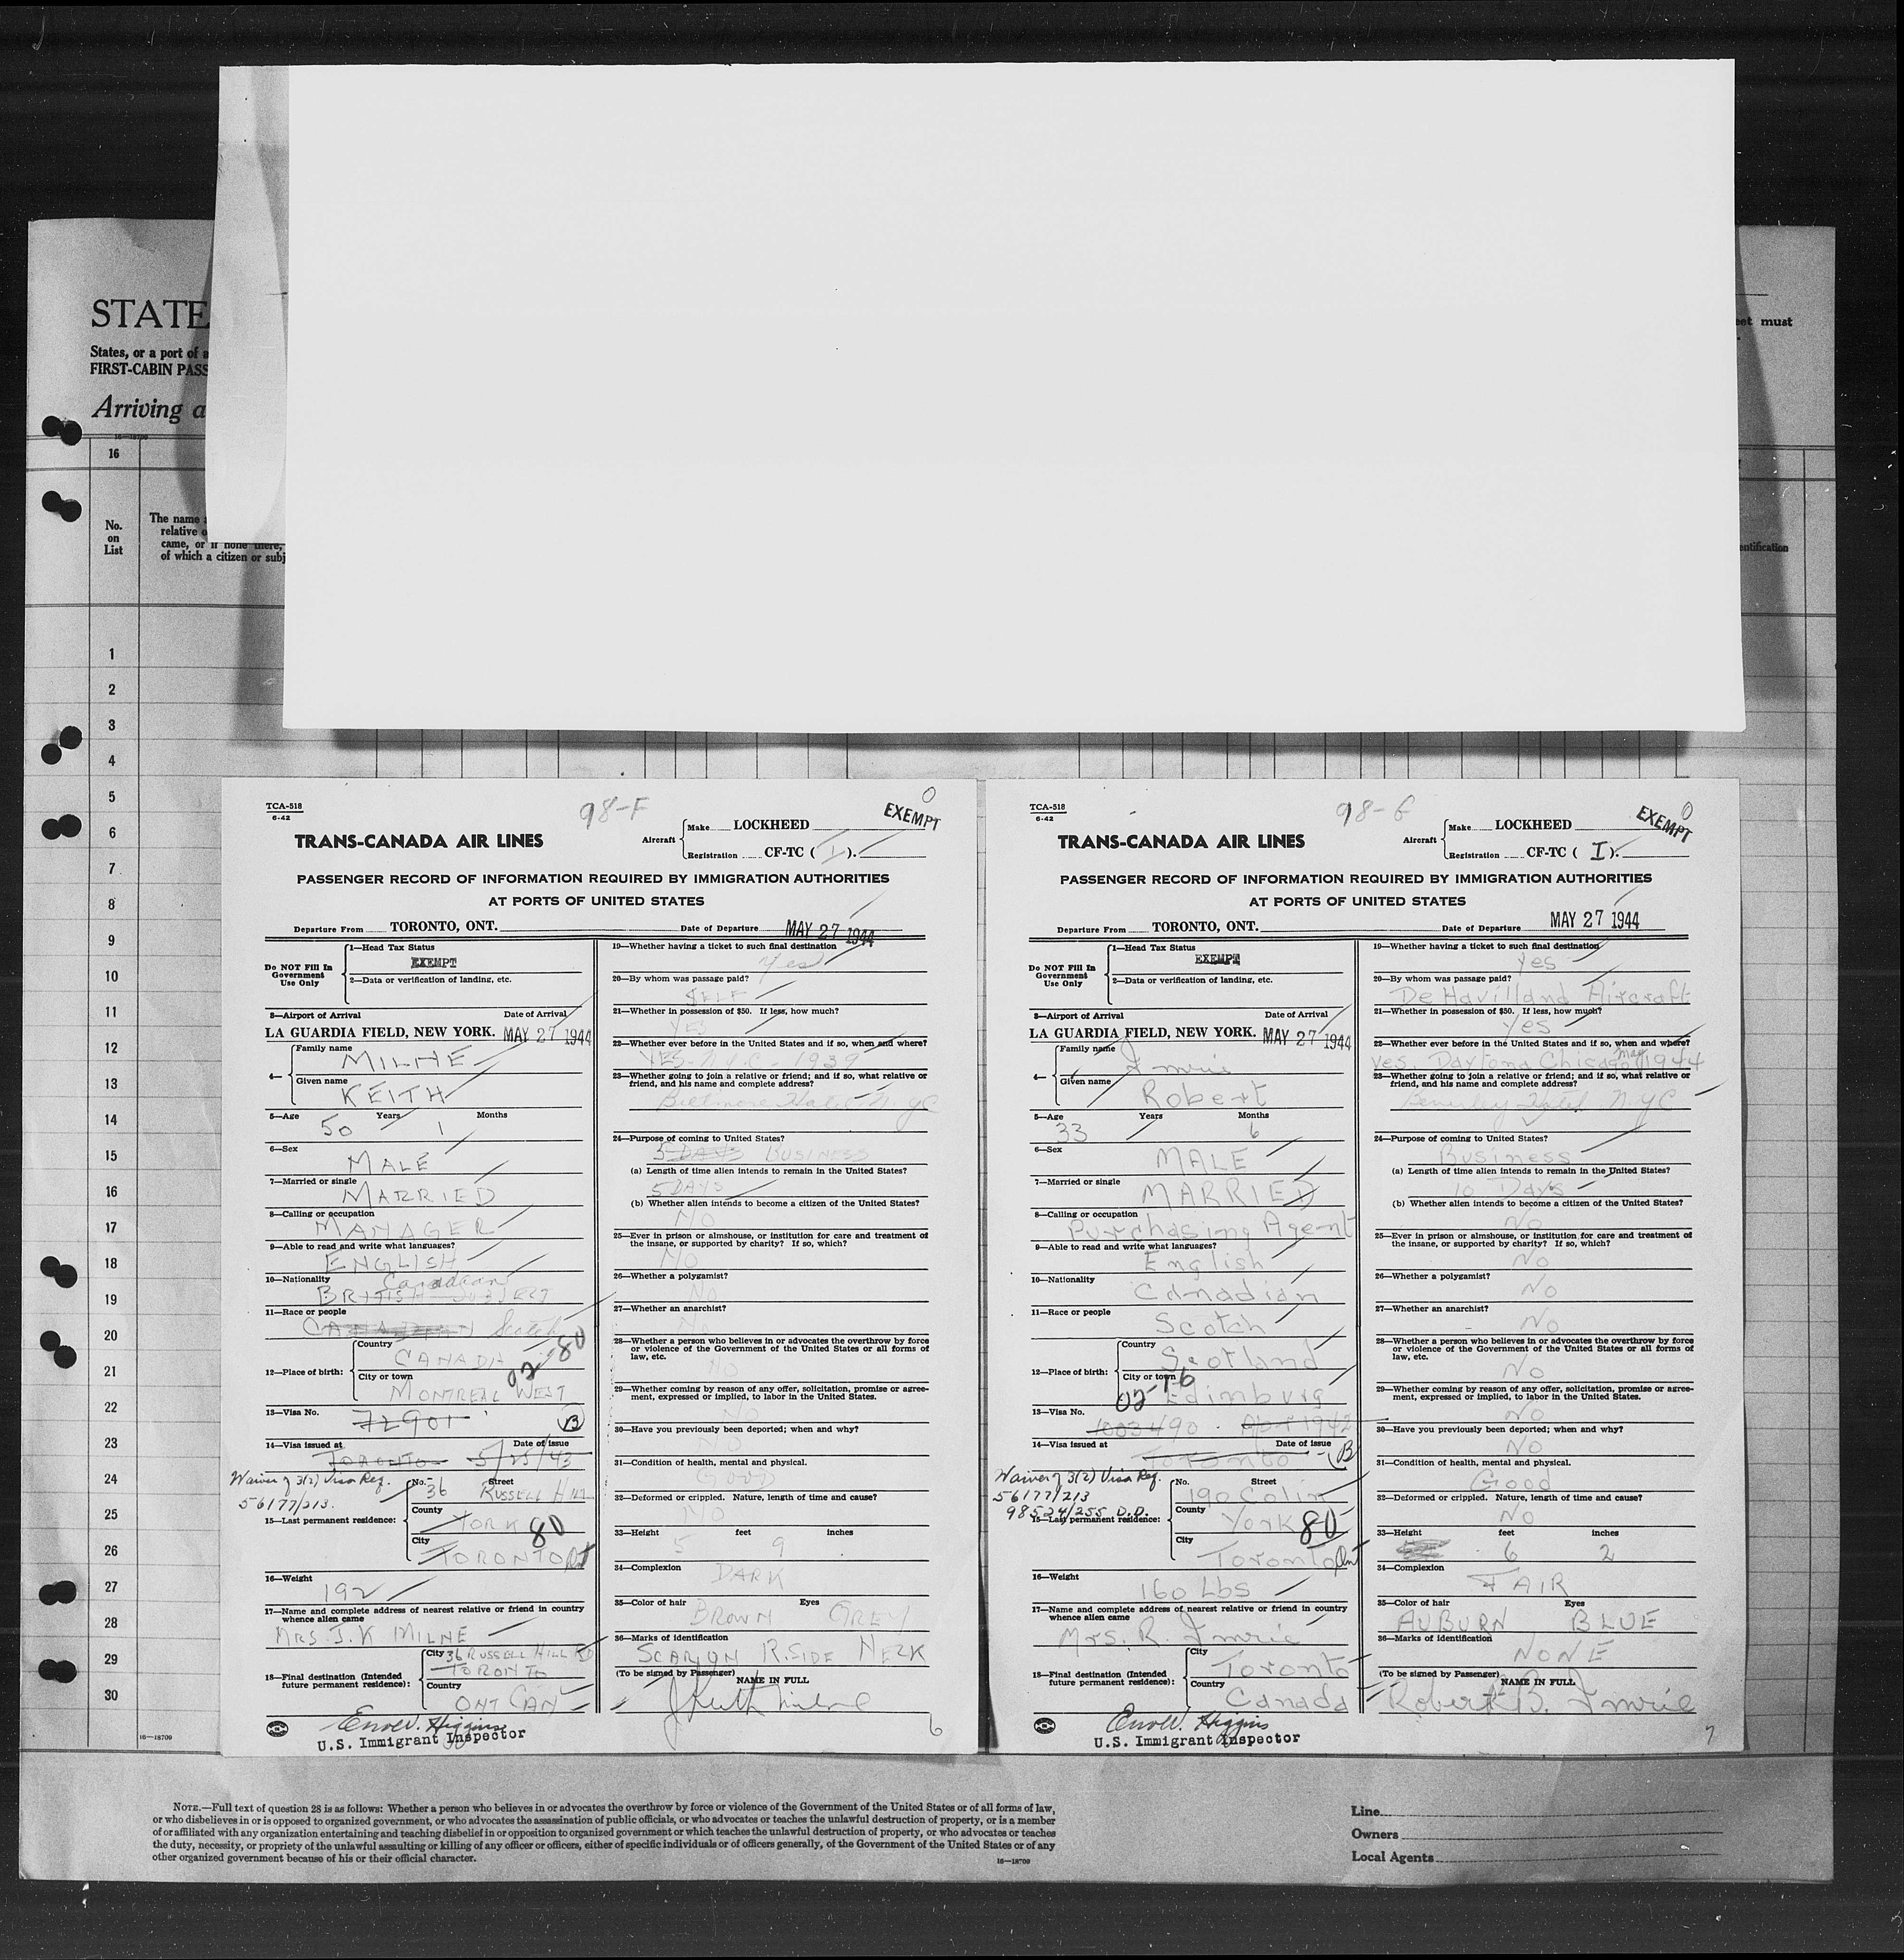 STATE
States, or a port of a
FIRST-CABIN PASS
Arriving a
eet must
16
No.
on
List
The name
relative o
came, or if none there,
of which a citizen or subj
entification
1
2
3
4
5
6
7
8
9
10
11
12
13
14
15
16
17
18
19
20
21
22
23
24
25
26
27
28
29
30
16—18709
TCA-518
6-42
98-F
0
EXEMPT
TRANS-CANADA AIR LINES
Aircraft
Make LOCKHEED
Registration CF-TC ( I ).
PASSENGER RECORD OF INFORMATION REQUIRED BY IMMIGRATION AUTHORITIES
AT PORTS OF UNITED STATES
Departure From TORONTO, ONT. Date of Departure MAY 27 1944
Do NOT Fill In
Government
Use Only
1—Head Tax Status
EXEMPT
2—Data or verification of landing, etc.
3—Airport of Arrival Date of Arrival
LA GUARDIA FIELD, NEW YORK. MAY 27 1944
4—
Family name
MILNE
Given name
KEITH
5—Age Years Months
50 1
6—Sex
MALE
7—Married or single
MARRIED
8—Calling or occupation
MANAGER
9—Able to read and write what languages?
ENGLISH
10—Nationality Canadian
BRITISH SUBJECT
11—Race or people
CANADIAN Scotch
12—Place of birth:
Country
CANADA
02-80
City or town
MONTREAL WEST
13—Visa No.
72901 B
14—Visa issued at Date of issue
TORONTO 5/25/43
Waiver of 3(2) Visa Req.
56177/213.
15—Last permanent residence:
No. Street
36 RUSSELL HILL
County
YORK 80
City
TORONTO
16—Weight
192
17—Name and complete address of nearest relative or friend in country
whence alien came
MRS J.K MILNE
18—Final destination (Intended
future permanent residence):
City 36 RUSSELL HILL RD
TORONTO
Country
ONT CAN
19—Whether having a ticket to such final destination
Yes
20—By whom was passage paid?
SELF
21—Whether in possession of $50. If less, how much?
YES
22—Whether ever before in the United States and if so, when and where?
YES - N.Y.C - 1939
23—Whether going to join a relative or friend; and if so, what relative or
friend, and his name and complete address?
Biltmore Hotel N.Y.C
24—Purpose of coming to United States?
5 DAYS BUSINESS
(a) Length of time alien intends to remain in the United States?
5 DAYS
(b) Whether alien intends to become a citizen of the United States?
NO
25—Ever in prison or almshouse, or institution for care and treatment of
the insane, or supported by charity? If so, which?
NO
26—Whether a polygamist?
NO
27—Whether an anarchist?
NO
28—Whether a person who believes in or advocates the overthrow by force
or violence of the Government of the United States or all forms of
law, etc.
NO
29—Whether coming by reason of any offer, solicitation, promise or agree-
ment, expressed or implied, to labor in the United States.
NO
30—Have you previously been deported; when and why?
NO
31—Condition of health, mental and physical.
GOOD
32—Deformed or crippled. Nature, length of time and cause?
NO
33—Height feet inches
5 9
34—Complexion
DARK
35—Color of hair Eyes
BROWN GREY
36—Marks of identification
SCAR ON R.SIDE NECK
(To be signed by Passenger)
NAME IN FULL
J Keith Milne
Errol V. Higgins
U.S. Immigrant Inspector
6
TCA-518
6-42
98-G
0
EXEMPT
TRANS-CANADA AIR LINES
Aircraft
Make LOCKHEED
Registration CF-TC ( I ).
PASSENGER RECORD OF INFORMATION REQUIRED BY IMMIGRATION AUTHORITIES
AT PORTS OF UNITED STATES
Departure From TORONTO, ONT. Date of Departure MAY 27 1944
Do NOT Fill In
Government
Use Only
1—Head Tax Status
EXEMPT
2—Data or verification of landing, etc.
3—Airport of Arrival Date of Arrival
LA GUARDIA FIELD, NEW YORK. MAY 27 1944
4—
Family name
Imrie
Given name
Robert
5—Age Years Months
33 6
6—Sex
MALE
7—Married or single
MARRIED
8—Calling or occupation
Purchasing Agent
9—Able to read and write what languages?
English
10—Nationality
Canadian
11—Race or people
Scotch
12—Place of birth:
Country
Scotland
City or town
02-76
Edimburg
13—Visa No.
1003490 1942
14—Visa issued at Date of issue
Toronto B
Waiver of 3(2) Visa Req.
56177/213
98524/255 D.D.
15—Last permanent residence:
No. Street
190 Colin
County
York 80
City
Toronto Ont
16—Weight
160 Lbs
17—Name and complete address of nearest relative or friend in country
whence alien came
Mrs. R. Imrie
18—Final destination (Intended
future permanent residence):
City
Toronto
Country
Canada
19—Whether having a ticket to such final destination
Yes
20—By whom was passage paid?
De Havilland Aircraft
21—Whether in possession of $50. If less, how much?
Yes
22—Whether ever before in the United States and if so, when and where?
Yes. Daytona Chicago May 1944
23—Whether going to join a relative or friend; and if so, what relative or
friend, and his name and complete address?
Beverley Hotel N.Y.C
24—Purpose of coming to United States?
Business
(a) Length of time alien intends to remain in the United States?
10 Days
(b) Whether alien intends to become a citizen of the United States?
No
25—Ever in prison or almshouse, or institution for care and treatment of
the insane, or supported by charity? If so, which?
No
26—Whether a polygamist?
No
27—Whether an anarchist?
No
28—Whether a person who believes in or advocates the overthrow by force
or violence of the Government of the United States or all forms of
law, etc.
No
29—Whether coming by reason of any offer, solicitation, promise or agree-
ment, expressed or implied, to labor in the United States.
No
30—Have you previously been deported; when and why?
No
31—Condition of health, mental and physical.
Good
32—Deformed or crippled. Nature, length of time and cause?
No
33—Height feet inches
6 2
34—Complexion
FAIR
35—Color of hair Eyes
AUBURN BLUE
36—Marks of identification
NONE
(To be signed by Passenger)
NAME IN FULL
Robert B. Imrie
Errol V. Higgins
U.S. Immigrant Inspector
7
NOTE.—Full text of question 28 is as follows: Whether a person who believes in or advocates the overthrow by force or violence of the Government of the United States or of all forms of law,
or who disbelieves in or is opposed to organized government, or who advocates the assassination of public officials, or who advocates or teaches the unlawful destruction of property, or is a member
of or affiliated with any organization entertaining and teaching disbelief in or opposition to organized government or which teaches the unlawful destruction of property, or who advocates or teaches
the duty, necessity, or propriety of the unlawful assaulting or killing of any officer or officers, either of specific individuals or of officers generally, of the Government of the United States or of any
other organized government because of his or their official character.
16—18709
Line
Owners
Local Agents